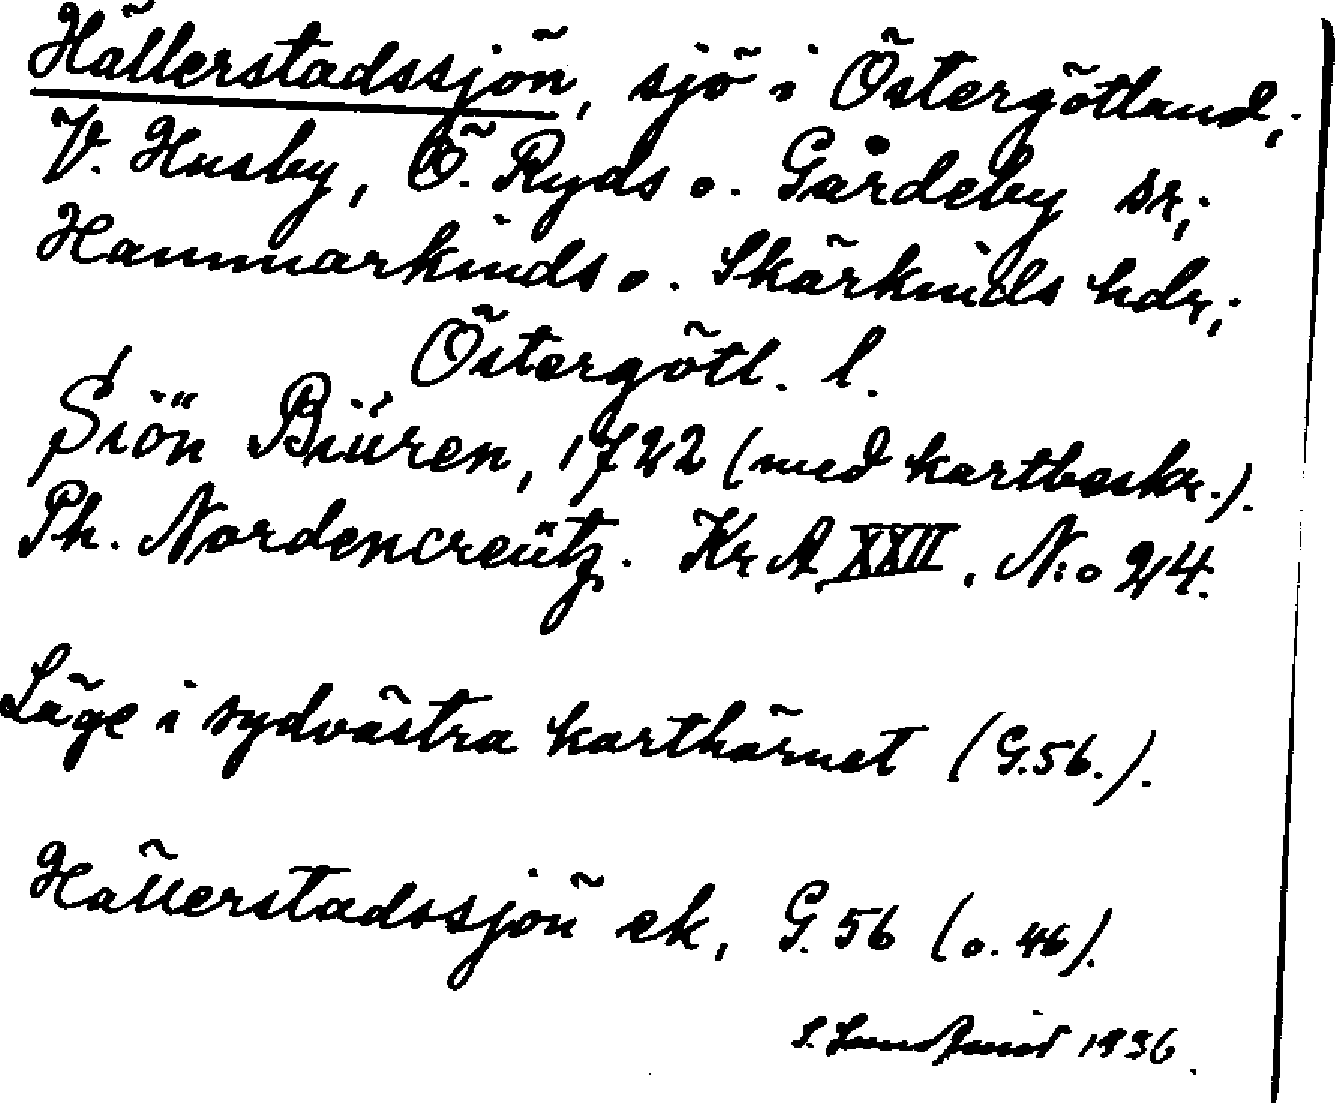 Hällerstadssjön, sjö i Östergötland;
V. Husby, Ö. Ryds o. Gårdeby sr;
Hammarkinds o. Skärkinds hdr;
Östergötl. l.
Siön Biüren, 1722 (med kartbeskr.).
Ph. Nordencreütz. Kr A XXII, N:o 24.
Läge i sydvästra karthörnet (G.56.).
Hällerstadssjön ek, G. 56 (o. 46).
S. 1936.